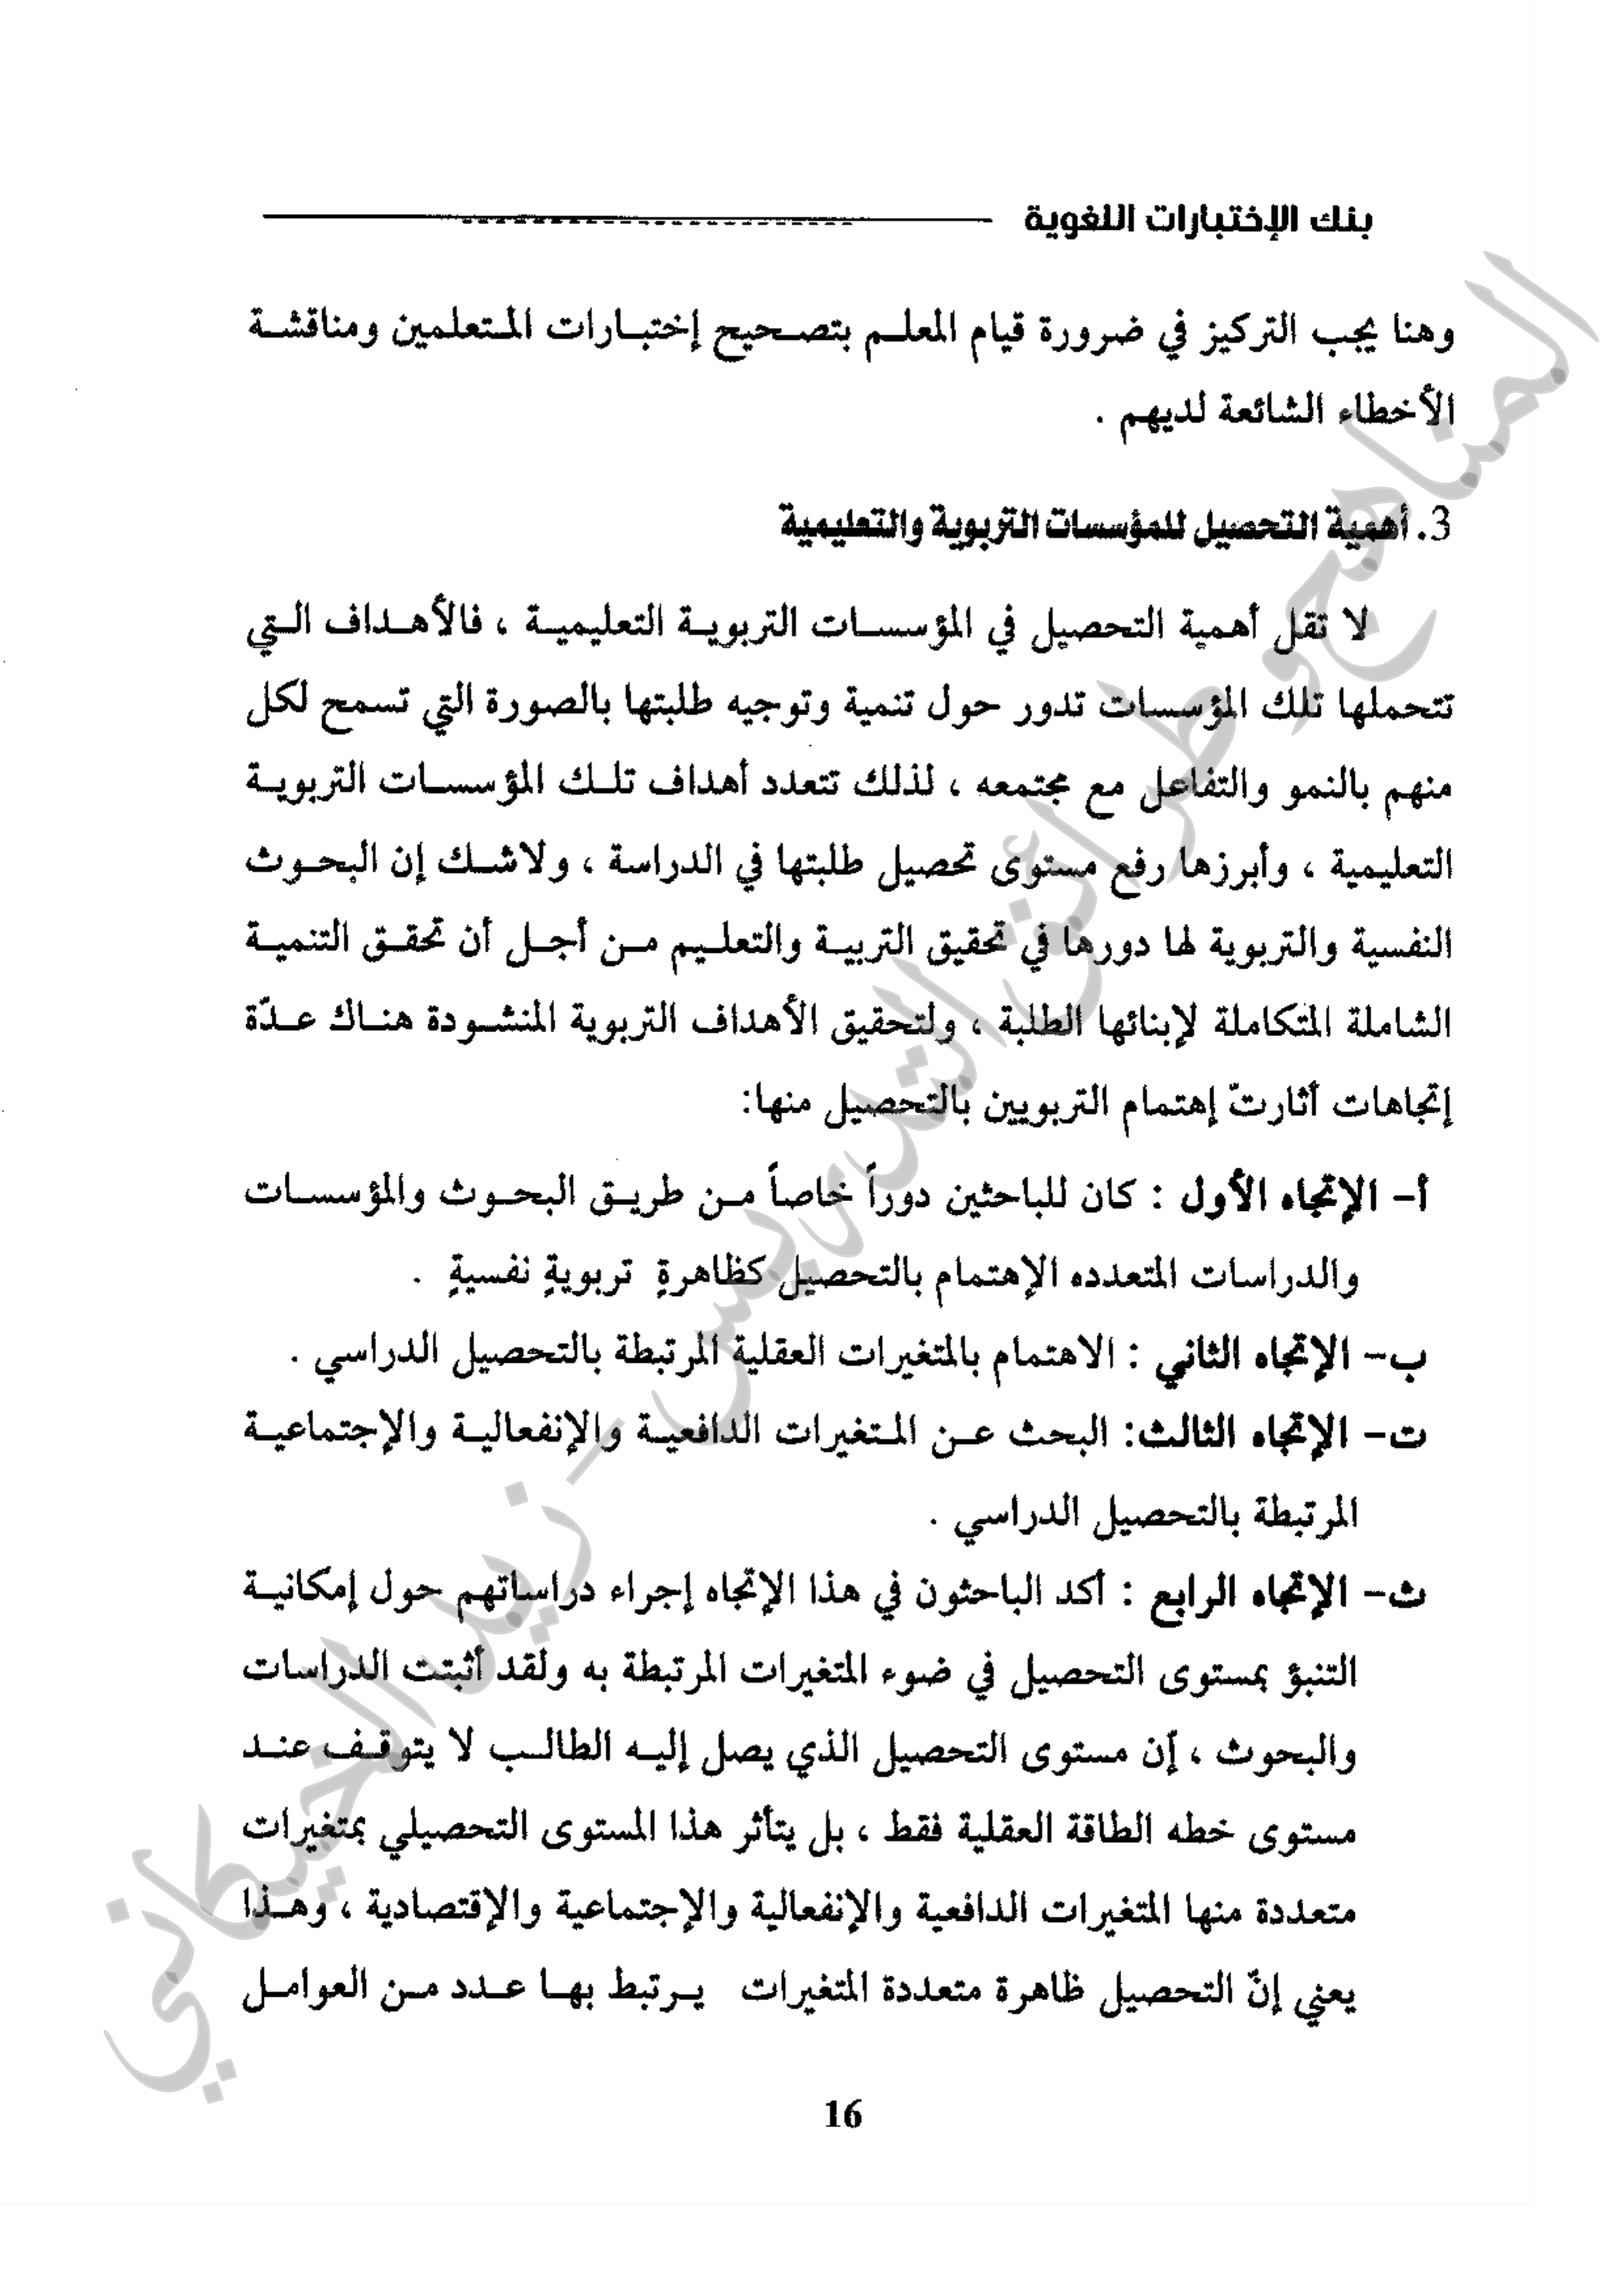 بنك الإختبارات اللغوية
وهنا يجب التركيز في ضرورة قيام المعلم بتصحيح إختبارات المتعلمين ومناقشة
الأخطاء الشائعة لديهم .
3. أهمية التحصيل للمؤسسات التربوية والتعليمية
لا تقل أهمية التحصيل في المؤسسات التربوية التعليمية ، فالأهداف التي
تتحملها تلك المؤسسات تدور حول تنمية وتوجيه طلبتها بالصورة التي تسمح لكل
منهم بالنمو والتفاعل مع مجتمعه ، لذلك تتعدد أهداف تلك المؤسسات التربوية
التعليمية ، وأبرزها رفع مستوى تحصيل طلبتها في الدراسة ، ولاشك إن البحوث
النفسية والتربوية لها دورها في تحقيق التربية والتعليم من أجل أن تحقق التنمية
الشاملة المتكاملة لإبنائها الطلبة ، ولتحقيق الأهداف التربوية المنشودة هناك عدّة
إتجاهات أثارتّ إهتمام التربويين بالتحصيل منها:
أ- الإتجاه الأول : كان للباحثين دوراً خاصاً من طريق البحوث والمؤسسات
والدراسات المتعدده الإهتمام بالتحصيل كظاهرةٍ تربويةٍ نفسيةٍ .
ب- الإتجاه الثاني : الاهتمام بالمتغيرات العقلية المرتبطة بالتحصيل الدراسي .
ت- الإتجاه الثالث: البحث عن المتغيرات الدافعية والإنفعالية والإجتماعية
المرتبطة بالتحصيل الدراسي .
ث- الإتجاه الرابع : أكد الباحثون في هذا الإتجاه إجراء دراساتهم حول إمكانية
التنبؤ بمستوى التحصيل في ضوء المتغيرات المرتبطة به ولقد أثبتت الدراسات
والبحوث ، إن مستوى التحصيل الذي يصل إليه الطالب لا يتوقف عند
مستوى خطه الطاقة العقلية فقط ، بل يتأثر هذا المستوى التحصيلي بمتغيرات
متعددة منها المتغيرات الدافعية والإنفعالية والإجتماعية والإقتصادية ، وهذا
يعني إنّ التحصيل ظاهرة متعددة المتغيرات يرتبط بها عدد من العوامل
16
المناهج وطرائق التدريس - زيد الخيكاني